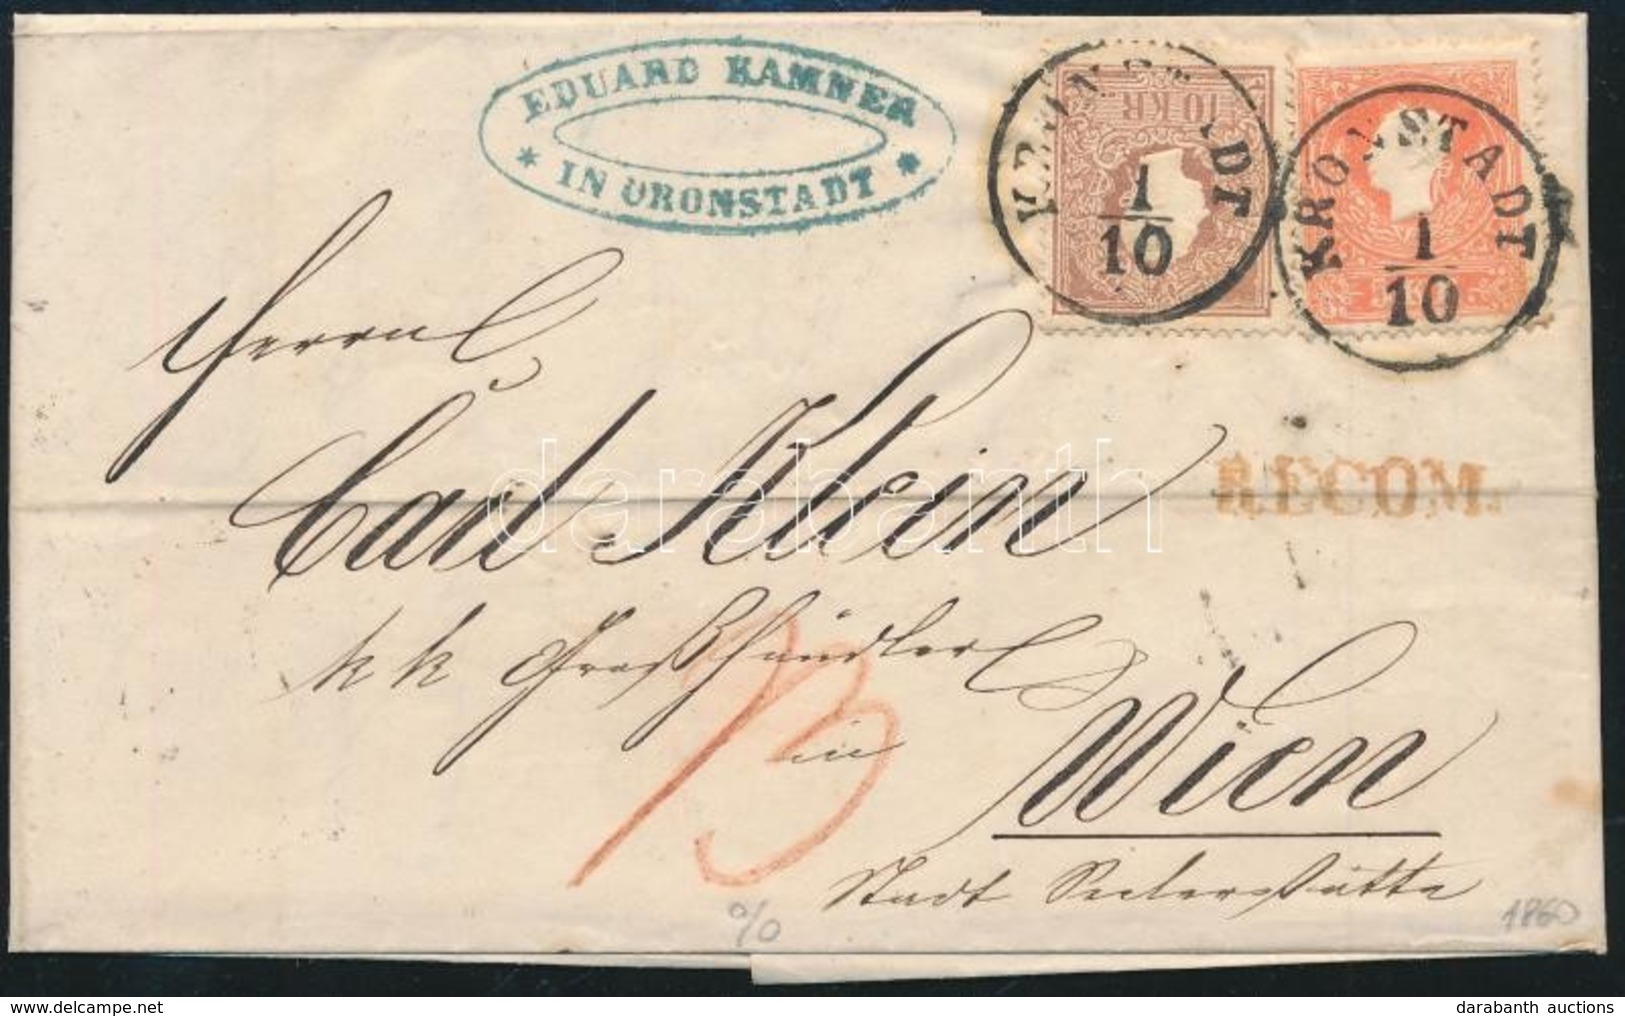 EDUARD KAMNER
* IN CRONSTADT *
10 KR
KRONSTADT
1/10
KRONSTADT
1/10
Herrn
Carl Klein
RECOM.
darabanth
k k Großhändler
in
Wien
Stadt
1860
© www.darabanth.com
darabanth auctions